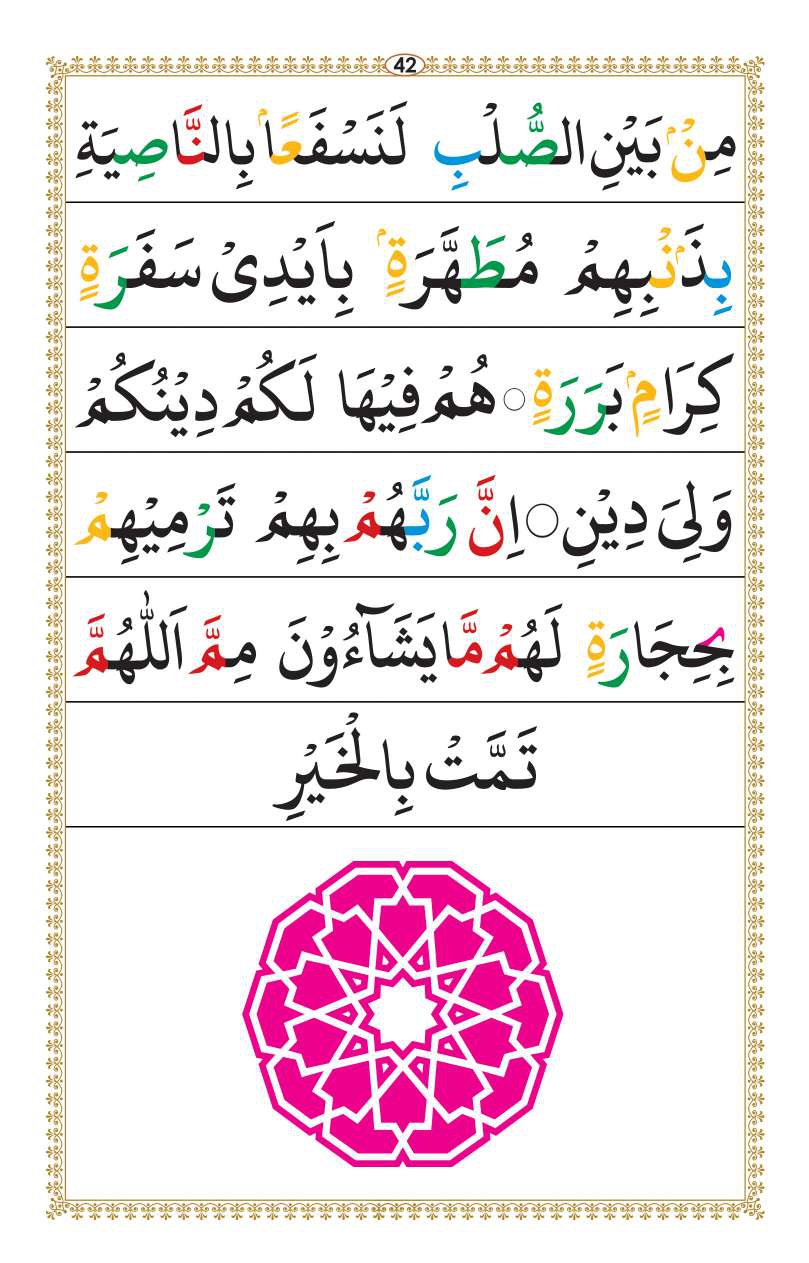 42
مِنْۢ بَيْنِ الصُّلْبِ لَنَسْفَعًاۢ بِالنَّاصِيَةِ
بِذَنْۢبِهِمْ مُطَهَّرَةٍۭ بِاَيْدِيْ سَفَرَةٍ
كِرَامٍۭ بَرَرَةٍ ○ هُمْ فِيْهَا لَكُمْ دِيْنُكُمْ
وَلِيَ دِيْنِ ○ اِنَّ رَبَّهُمْ بِهِمْ تَرْمِيْهِمْ
بِحِجَارَةٍ لَهُمْ مَّا يَشَآءُوْنَ مِمَّ اَللّٰهُمَّ
تَمَّتْ بِالْخَيْرِ